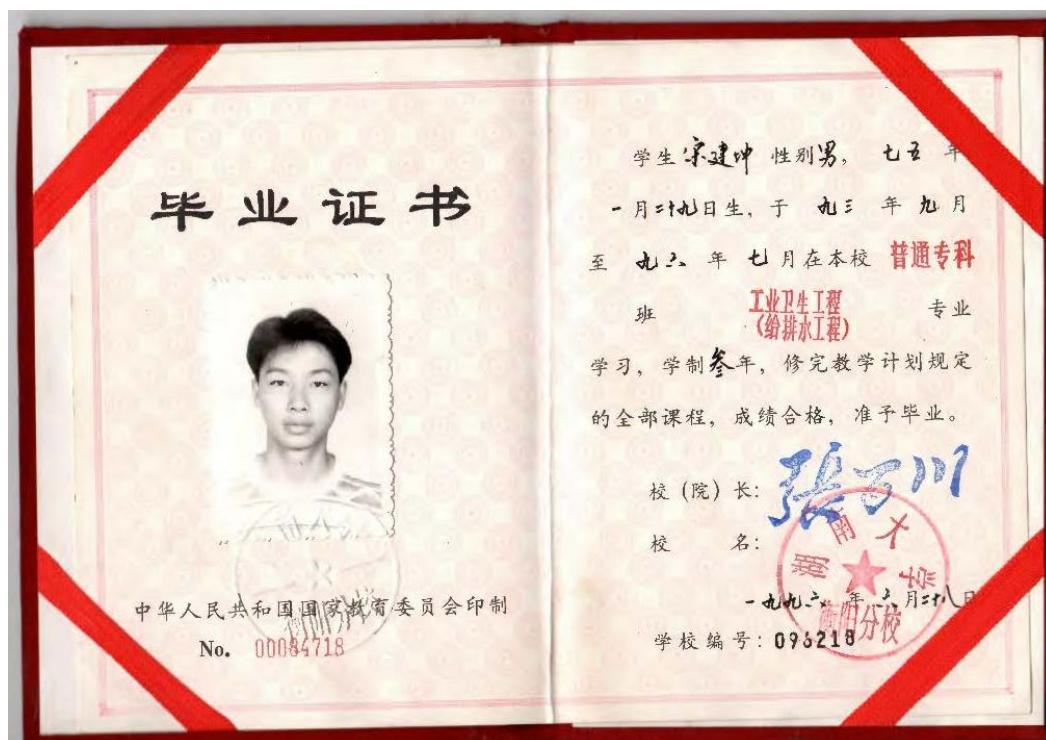 毕业证书
中华人民共和国国家教育委员会印制
No. 00084718
学生宋建坤 性别男, 七五 年
一月二十九日生, 于 九三 年 九 月
至 九六 年 七 月在本校 普通专科
班 工业卫生工程 专业
(给排水工程)
学习, 学制叁年, 修完教学计划规定
的全部课程, 成绩合格, 准予毕业。
校(院)长: 張万川
校 名:
湖南大学
衡阳分校
一九九六 年 六月二十八日
学校编号: 096218